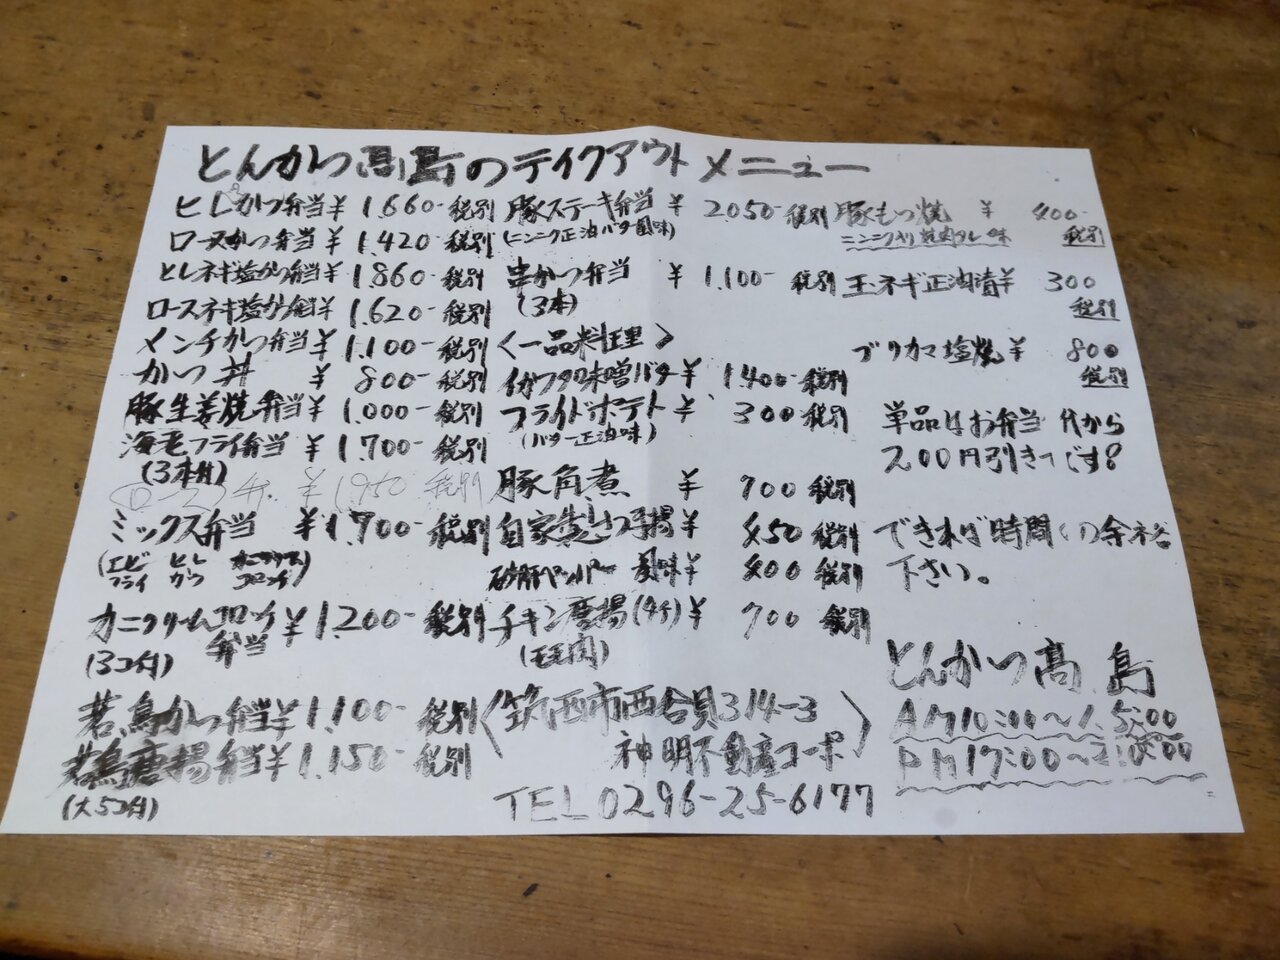 とんかつ高島のテイクアウトメニュー
ヒレかつ弁当 ¥1.660- 税別
ロースかつ弁当 ¥1.420- 税別
ヒレネギ塩かつ弁当 ¥1.860 税別
ロースネギ塩かつ弁当 ¥1.620- 税別
メンチかつ弁当 ¥1.100- 税別
かつ丼 ¥800- 税別
豚生姜焼弁当 ¥1.000- 税別
海老フライ弁当 ¥1.700- 税別
(3本付)
ミックス弁当 ¥1.700- 税別
(エビフライ ヒレカツ カニクリームコロッケ)
カニクリームコロッケ弁当 ¥1.200- 税別
(3コ付)
若鳥かつ弁当 ¥1.100- 税別
若鳥唐揚弁当 ¥1.150- 税別
(大5コ付)
豚ステーキ弁当 ¥2.050- 税別
(ニンニク正油バター風味)
串かつ弁当 ¥1.100- 税別
(3本)
〈一品料理〉
味噌バター ¥1.400- 税別
フライドポテト ¥300 税別
(バター正油味)
豚角煮 ¥700 税別
自家製さつま揚 ¥450 税別
砂肝ペッパー風味 ¥400 税別
チキン唐揚 ¥700 税別
(モモ肉)
〈筑西市西谷貝314-3
神明不動産コーポ〉
TEL 0296-25-6177
豚もつ焼 ¥400- 税別
ニンニク入り焼肉タレ味
玉ネギ正油漬 ¥300 税別
ブリカマ塩焼 ¥800 税別
単品はお弁当代から
200円引きです。
できれば時間の余裕
下さい。
とんかつ高島
AM10:00〜15:00
PM17:00〜21:00